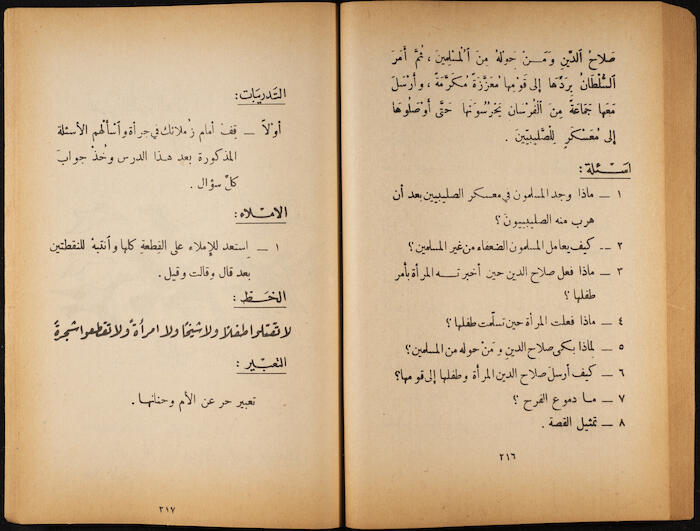 صَلاحُ الدِّينِ وَمَنْ حَوْلَهُ مِنَ الْمُسْلِمِينَ ، ثُمَّ أَمَرَ
السُّلْطَانُ بِرَدِّهَا إِلى قَوْمِهَا مُعَزَّزَةً مُكَرَّمَةً ، وَأَرْسَلَ
مَعَهَا جَمَاعَةً مِنَ الْفُرْسَانِ يَحْرُسُونَهَا حَتَّى أَوْصَلُوهَا
إِلى مُعَسْكَرِ الصَّلِيبِيِّينَ .
اسئلة :
١ – ماذا وجد المسلمون في معسكر الصليبيين بعد أن
هرب منه الصليبيون ؟
٢ – كيف يعامل المسلمون الضعفاء من غير المسلمين ؟
٣ – ماذا فعل صلاح الدين حين أخبرته المرأة بأمر
طفلها ؟
٤ – ماذا فعلت المرأة حين تسلّمت طفلها ؟
٥ – لماذا بكى صلاح الدين ومَنْ حوله من المسلمين ؟
٦ – كيف أرسل صلاح الدين المرأة وطفلها إلى قومها ؟
٧ – ما دموع الفرح ؟
٨ – تمثيل القصة .
٢١٦
التدريبات :
أولاً – قِفْ أمام زُملائك في جرأة واسألهم الأسئلة
المذكورة بعد هذا الدرس وخُذْ جوابَ
كلّ سؤال .
الاملاء :
١ – إستعد للإملاء على القِطعةِ كلها وأنتبهْ للنقطتين
بعد قال وقالت وقيل .
الخط :
لا تقتلوا طفلاً ولا شيخًا ولا امرأةً ولا تقطعوا شجرةً
التعبير :
تعبير حر عن الأم وحنانها .
٢١٧